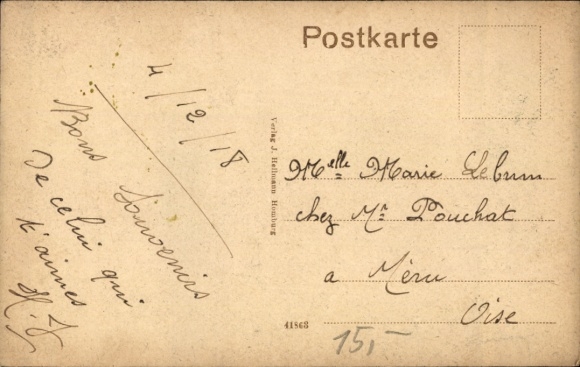 Postkarte
4/12/18
Bons Souvenirs
De celui qui
t'aimes
H. J
Verlag J. Heilmann Homburg
Melle Marie Lebrun
chez Mr Pouchat
a Méru
Oise
41863
15,-